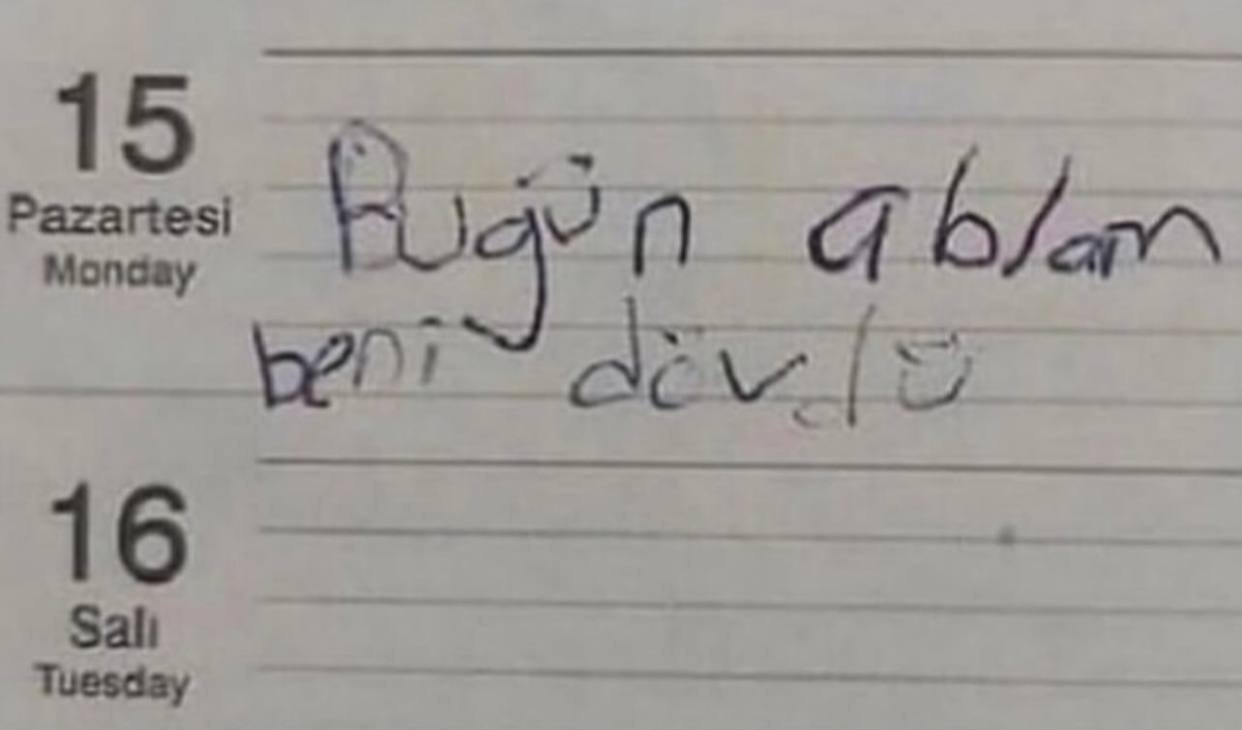 15
Pazartesi
Monday
Bugün ablam
beni dövdü
16
Salı
Tuesday